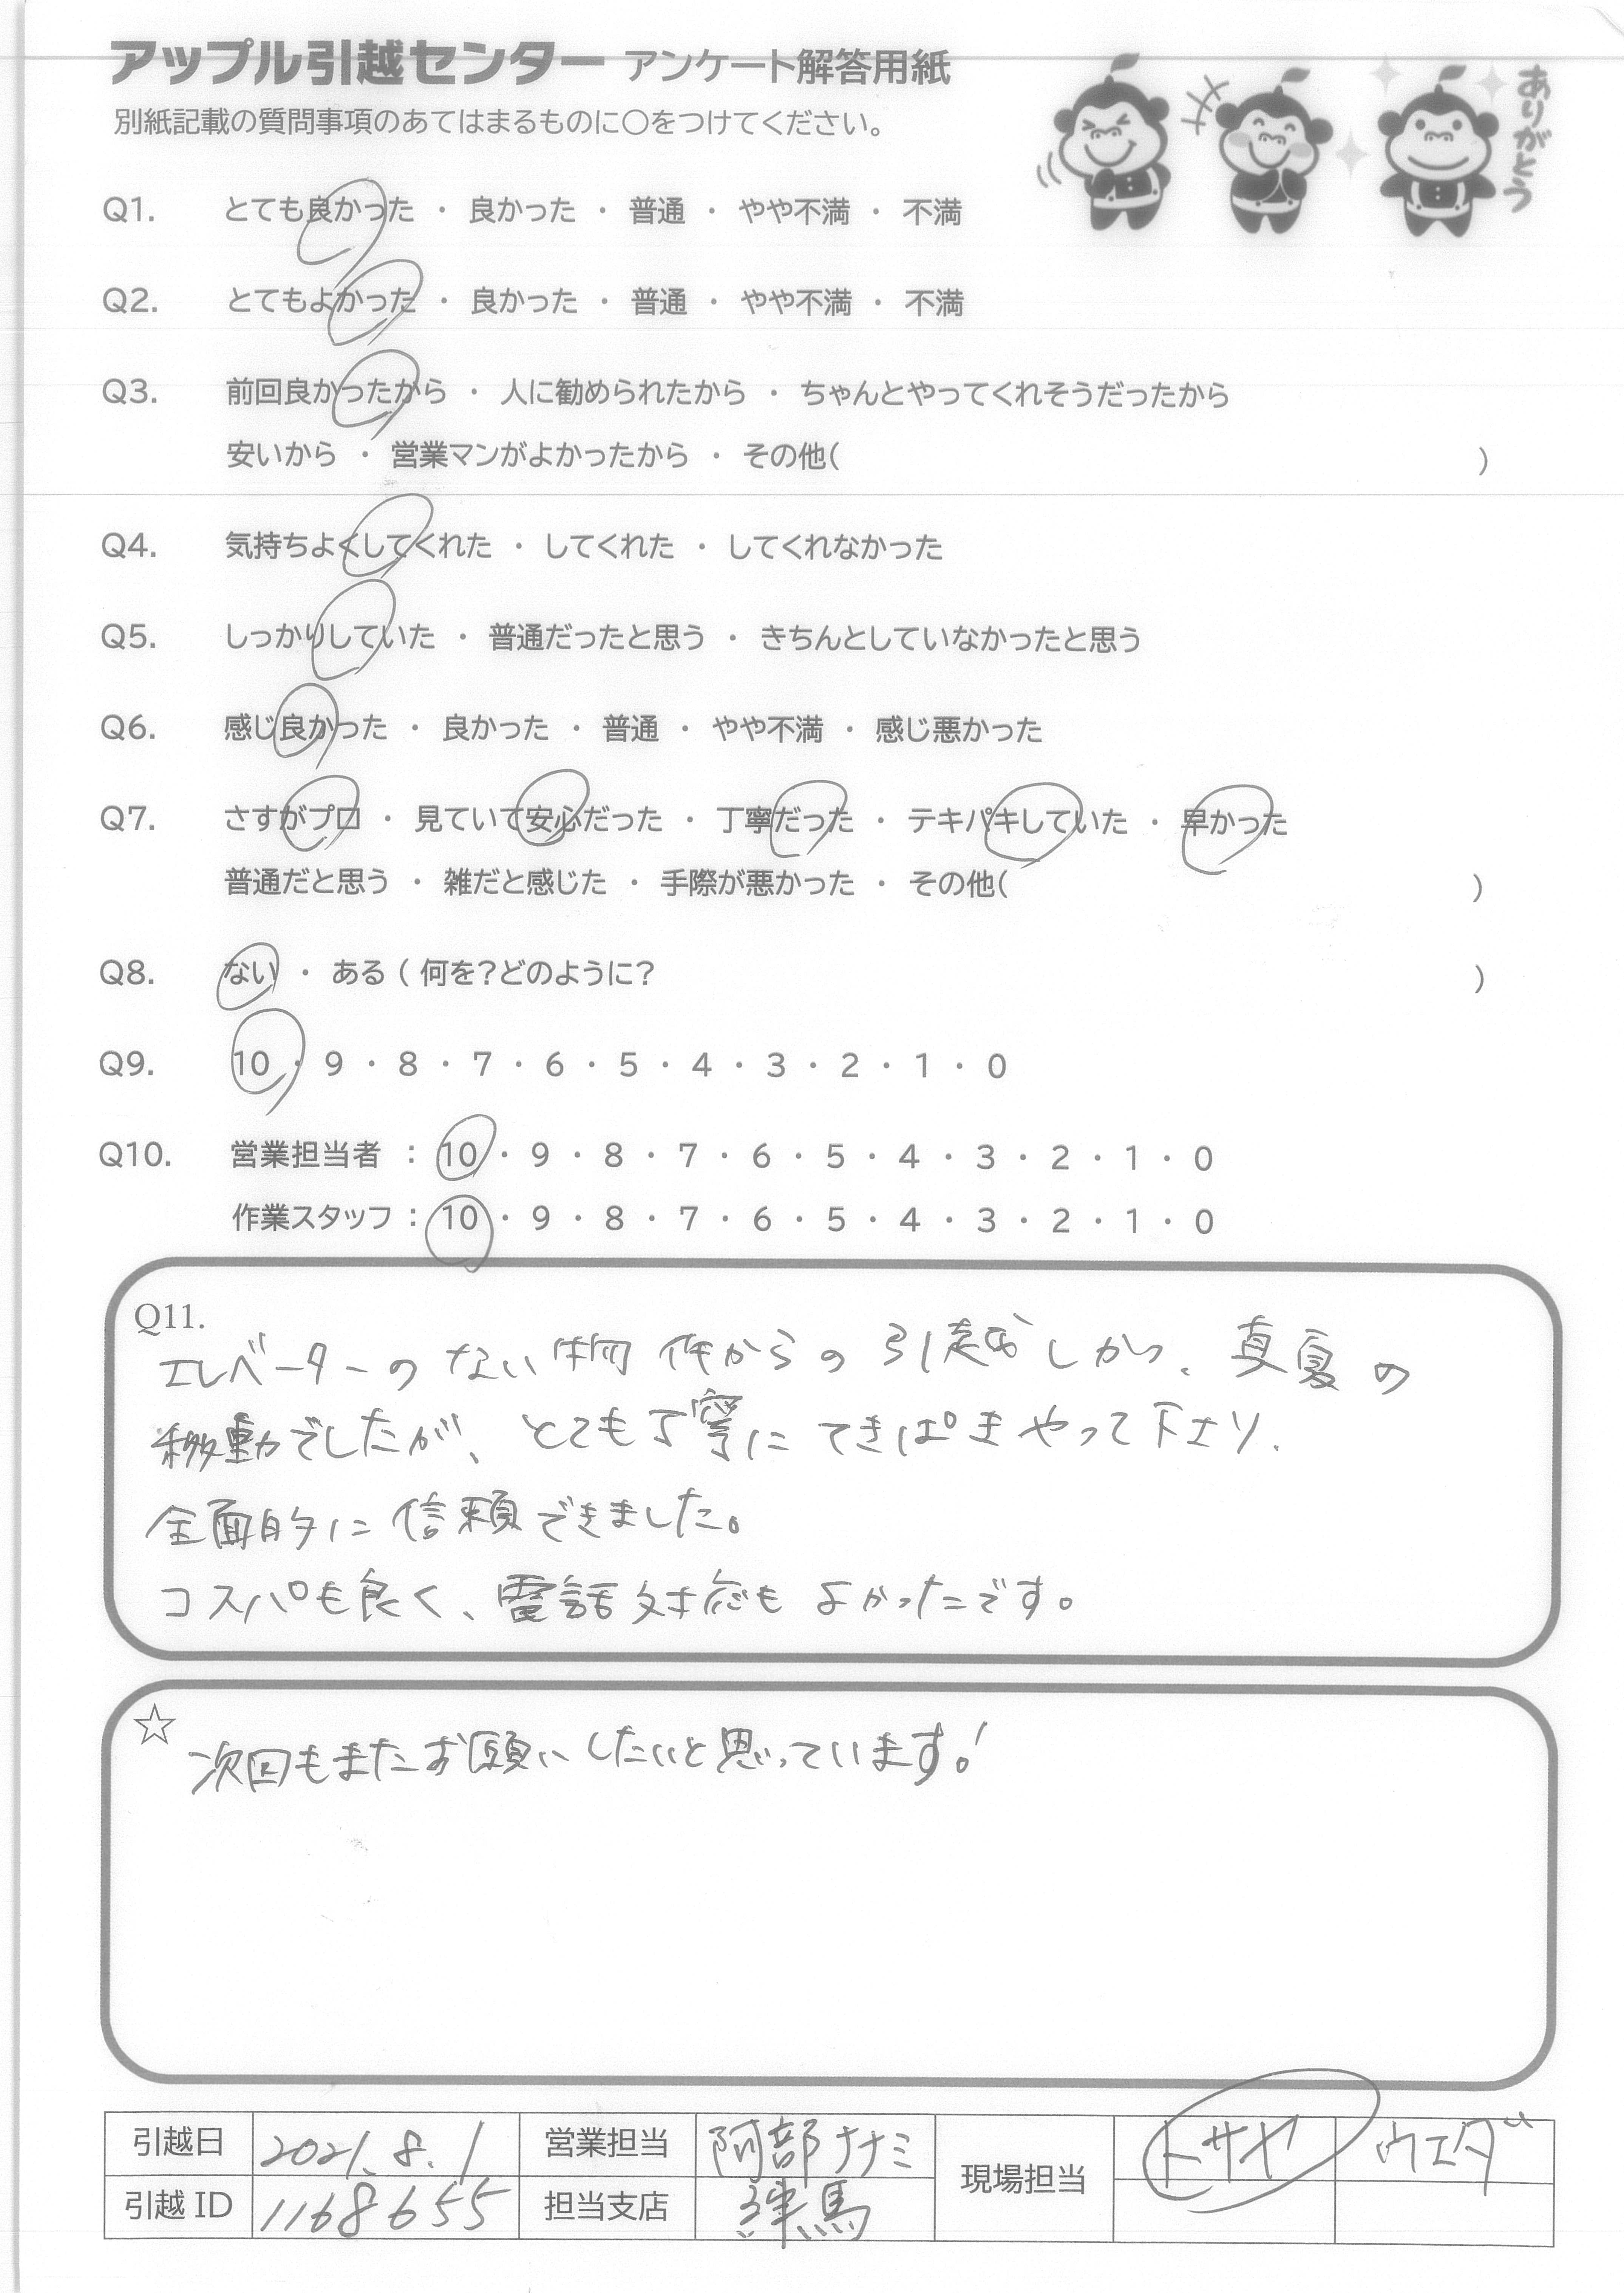 アップル引越センター アンケート解答用紙
別紙記載の質問事項のあてはまるものに○をつけてください。
ありがとう
Q1. とても良かった ・ 良かった ・ 普通 ・ やや不満 ・ 不満
Q2. とてもよかった ・ 良かった ・ 普通 ・ やや不満 ・ 不満
Q3. 前回良かったから ・ 人に勧められたから ・ ちゃんとやってくれそうだったから
安いから ・ 営業マンがよかったから ・ その他( )
Q4. 気持ちよくしてくれた ・ してくれた ・ してくれなかった
Q5. しっかりしていた ・ 普通だったと思う ・ きちんとしていなかったと思う
Q6. 感じ良かった ・ 良かった ・ 普通 ・ やや不満 ・ 感じ悪かった
Q7. さすがプロ ・ 見ていて安心だった ・ 丁寧だった ・ テキパキしていた ・ 早かった
普通だと思う ・ 雑だと感じた ・ 手際が悪かった ・ その他( )
Q8. ない ・ ある ( 何を?どのように? )
Q9. 10 ・ 9 ・ 8 ・ 7 ・ 6 ・ 5 ・ 4 ・ 3 ・ 2 ・ 1 ・ 0
Q10. 営業担当者 : 10 ・ 9 ・ 8 ・ 7 ・ 6 ・ 5 ・ 4 ・ 3 ・ 2 ・ 1 ・ 0
作業スタッフ : 10 ・ 9 ・ 8 ・ 7 ・ 6 ・ 5 ・ 4 ・ 3 ・ 2 ・ 1 ・ 0
Q11.
エレベーターの ない物件からの引越しかつ、真夏の
移動でしたが、とても丁寧に てきぱきやって下さり、
全面的に信頼できました。
コスパも良く、電話対応も よかったです。
☆
次回もまたお願いしたいと思っています!
引越日 2021.8.1 営業担当 阿部ナナミ 現場担当 トサヤ ウエダ
引越 ID 1168655 担当支店 練馬